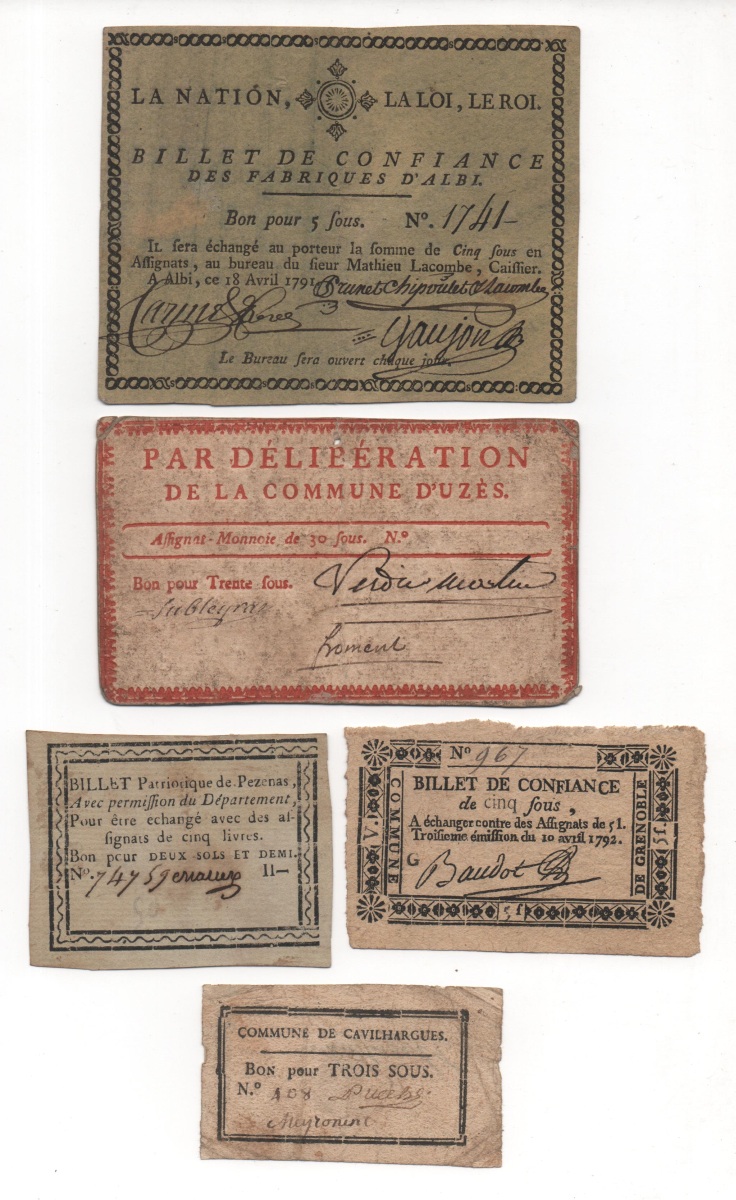 LA NATIÓN, LA LOI, LE ROI.
BILLET DE CONFIANCE
DES FABRIQUES D'ALBI.
Bon pour 5 ſous. Nº. 1741
IL ſera échangé au porteur la ſomme de Cinq ſous en
Aſſignats, au bureau du ſieur Mathieu Lacombe, Caiſſier.
A Albi, ce 18 Avril 1791 Brunet Chipoulet & Lacombe
Gaujou
Le Bureau ſera ouvert chaque jour.
PAR DÉLIBÉRATION
DE LA COMMUNE D'UZÈS.
Aſſignat-Monnoie de 30 ſous. N.º
Bon pour Trente ſous. Verdier
Froment
BILLET Patriotique de Pezenas,
Avec permiſſion du Département,
Pour être echangé avec des aſ-
ſignats de cinq livres.
Bon pour DEUX SOLS ET DEMI.
Nº. 7475 11—
Nº 967
BILLET DE CONFIANCE
de cinq ſous,
A échanger contre des Aſſignats de 5 l.
Troiſieme émiſſion du 10 avril 1792.
G Baudot
COMMUNE
DE GRENOBLE
V.
5 ſ
5 ſ
COMMUNE DE CAVILHARGUES.
BON pour TROIS SOUS.
N.º 108
Meyronine